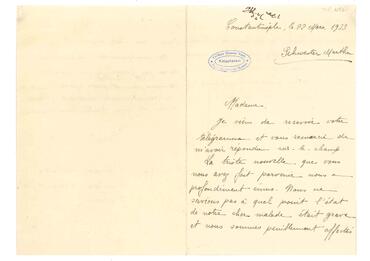 Constantinople, le 22 Mars 1933
Schwester Martha
Madame
Je viens de recevoir votre
télégramme et vous remercie de
m'avoir répondu sur-le-champ
La triste nouvelle que vous
nous avez fait parvenir nous a
profondement emus. Nous ne
savions pas à quel point l'état
de notre cher malade était grave
et nous sommes peniblement affectés